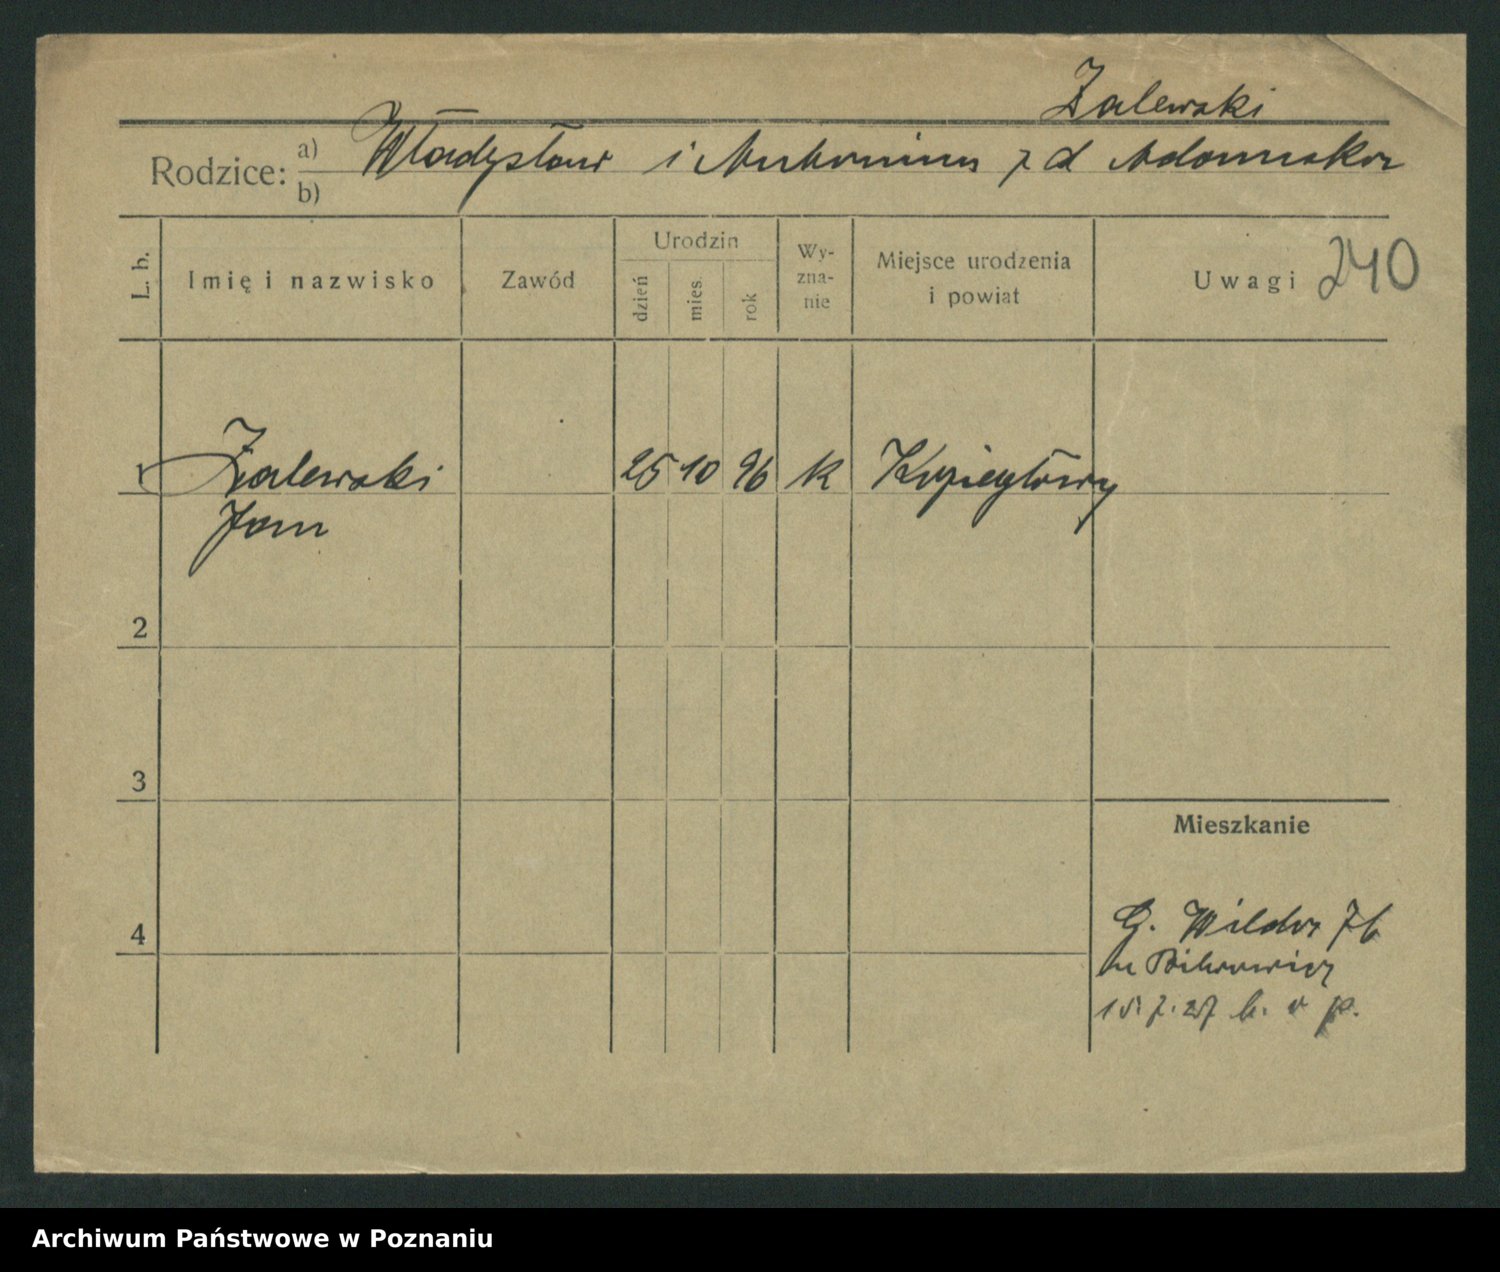 Zalewski
Rodzice: a) b) Władysław i Antonina z d Adamska
L. b. Imię i nazwisko Zawód Urodzin dzień mies. rok Wy-zna-nie Miejsce urodzenia i powiat Uwagi 240
1 Zalewski 25 10 96 k
Jan
2
3
Mieszkanie
4
G. Wilda 76
15. 7. 27
Archiwum Państwowe w Poznaniu